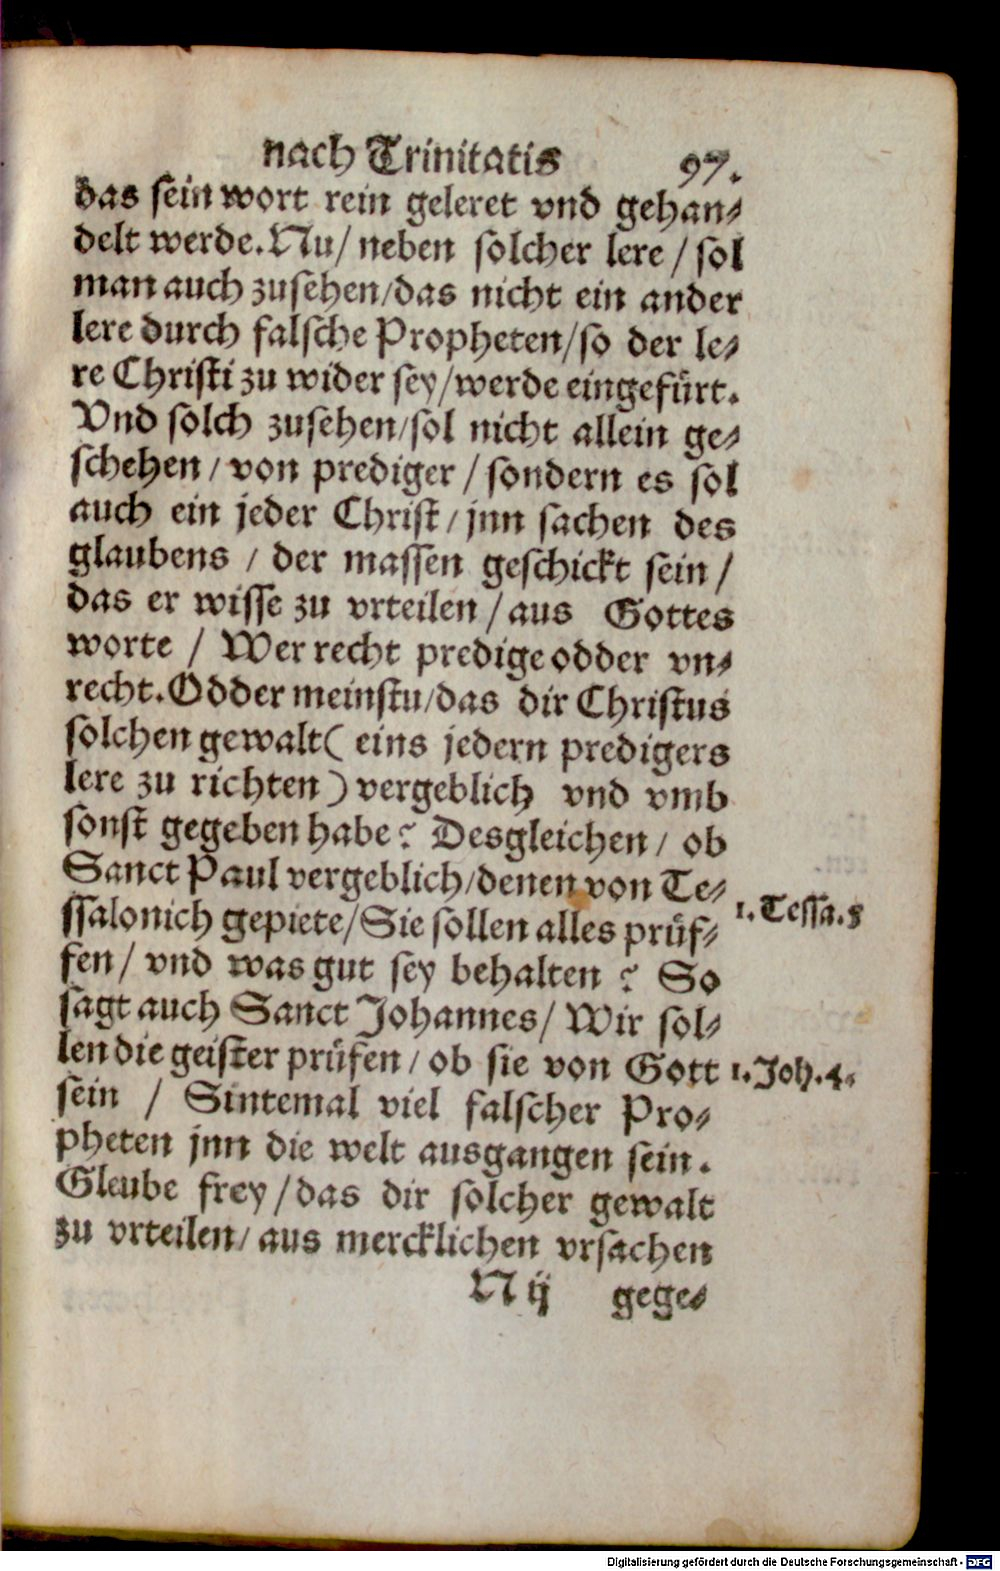 nach Trinitatis 97.
das sein wort rein geleret vnd gehan⸗
delt werde. Nu/ neben solcher lere / sol
man auch zusehen/das nicht ein ander
lere durch falsche Propheten/so der le⸗
re Christi zu wider sey/werde eingefürt.
Vnd solch zusehen/sol nicht allein ge⸗
schehen / von prediger / sondern es sol
auch ein jeder Christ / jnn sachen des
glaubens / der massen geschickt sein /
das er wisse zu vrteilen / aus Gottes
worte / Wer recht predige odder vn⸗
recht. Odder meinstu/das dir Christus
solchen gewalt ( eins jedern predigers
lere zu richten ) vergeblich vnd vmb
sonst gegeben habe? Desgleichen / ob
Sanct Paul vergeblich/denen von Te⸗
ssalonich gepiete/Sie sollen alles prüf⸗
1. Tessa. 5
fen / vnd was gut sey behalten ? So
sagt auch Sanct Johannes/ Wir sol⸗
len die geister prüfen / ob sie von Gott
1. Joh. 4.
sein / Sintemal viel falscher Pro⸗
pheten jnn die welt ausgangen sein.
Gleube frey / das dir solcher gewalt
zu vrteilen/ aus mercklichen vrsachen
N ij gege⸗
Digitalisierung gefördert durch die Deutsche Forschungsgemeinschaft - DFG